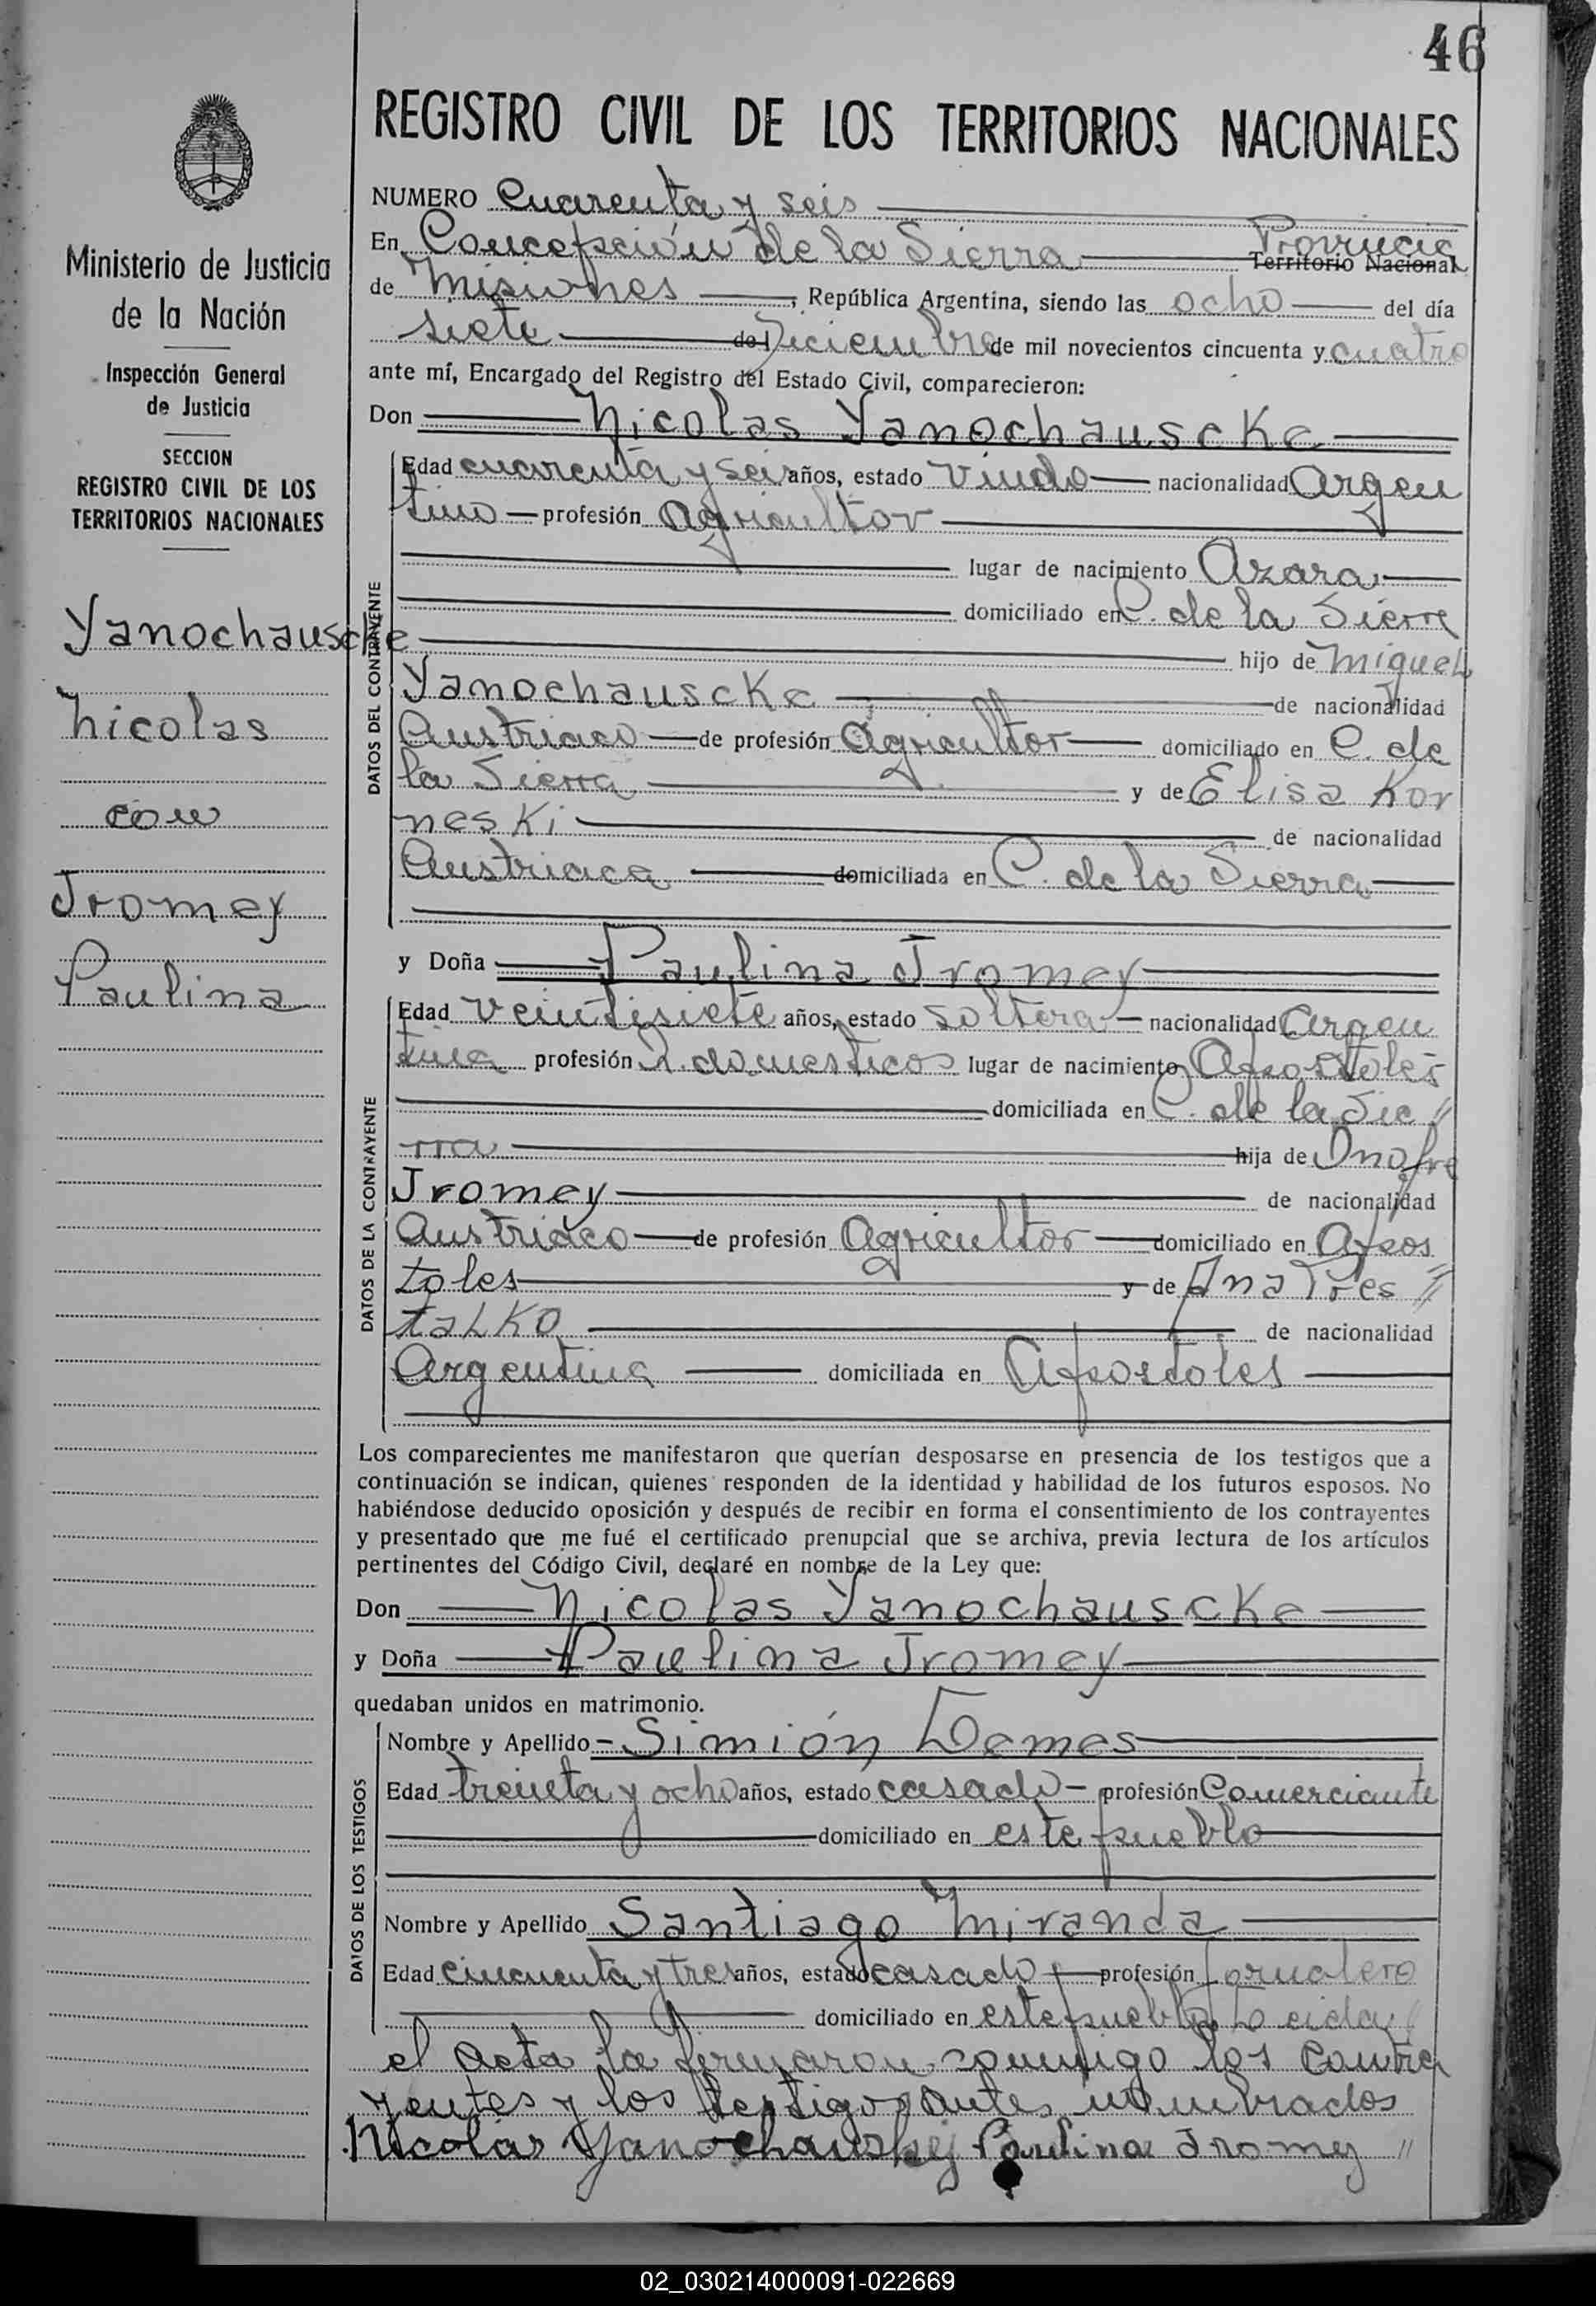 46
REGISTRO CIVIL DE LOS TERRITORIOS NACIONALES
Ministerio de Justicia
de la Nación
Inspección General
de Justicia
SECCION
REGISTRO CIVIL DE LOS
TERRITORIOS NACIONALES
Yanochauscke
Nicolas
con
Jromey
Paulina
NUMERO Cuarenta y seis
En Concepción de la Sierra Provincia
Territorio Nacional
de Misiones, República Argentina, siendo las ocho del día
siete de Diciembre de mil novecientos cincuenta y cuatro
ante mí, Encargado del Registro del Estado Civil, comparecieron:
Don Nicolas Yanochauscke
DATOS DEL CONTRAYENTE
Edad cuarenta y seis años, estado viudo nacionalidad Argen
tino profesión Agricultor
lugar de nacimiento Azara
domiciliado en C. de la Sierra
hijo de Miguel
Yanochauscke de nacionalidad
Austriaco de profesión Agricultor domiciliado en C. de
la Sierra y de Elisa Kor
neski de nacionalidad
Austriaca domiciliada en C. de la Sierra
y Doña Paulina Jromey
DATOS DE LA CONTRAYENTE
Edad veintisiete años, estado soltera nacionalidad Argen
tina profesión Q. domesticos lugar de nacimiento Apostoles
domiciliada en C. de la Sie //
rra hija de Onofre
Jromey de nacionalidad
Austriaco de profesión Agricultor domiciliado en Apos
toles y de Ana Pres //
talko de nacionalidad
Argentina domiciliada en Apostoles
Los comparecientes me manifestaron que querían desposarse en presencia de los testigos que a
continuación se indican, quienes responden de la identidad y habilidad de los futuros esposos. No
habiéndose deducido oposición y después de recibir en forma el consentimiento de los contrayentes
y presentado que me fué el certificado prenupcial que se archiva, previa lectura de los artículos
pertinentes del Código Civil, declaré en nombre de la Ley que:
Don Nicolas Yanochauscke
y Doña Paulina Jromey
quedaban unidos en matrimonio.
DATOS DE LOS TESTIGOS
Nombre y Apellido Simión Demes
Edad treinta y ocho años, estado casado profesión Comerciante
domiciliado en este pueblo
Nombre y Apellido Santiago Miranda
Edad cincuenta y tres años, estado casado profesión jornalero
domiciliado en este pueblo Leida
el acta la firmaron conmigo los contra
yentes y los testigos antes nombrados
Nicolas Yanochauskej Paulina Jromey //
02_030214000091-022669